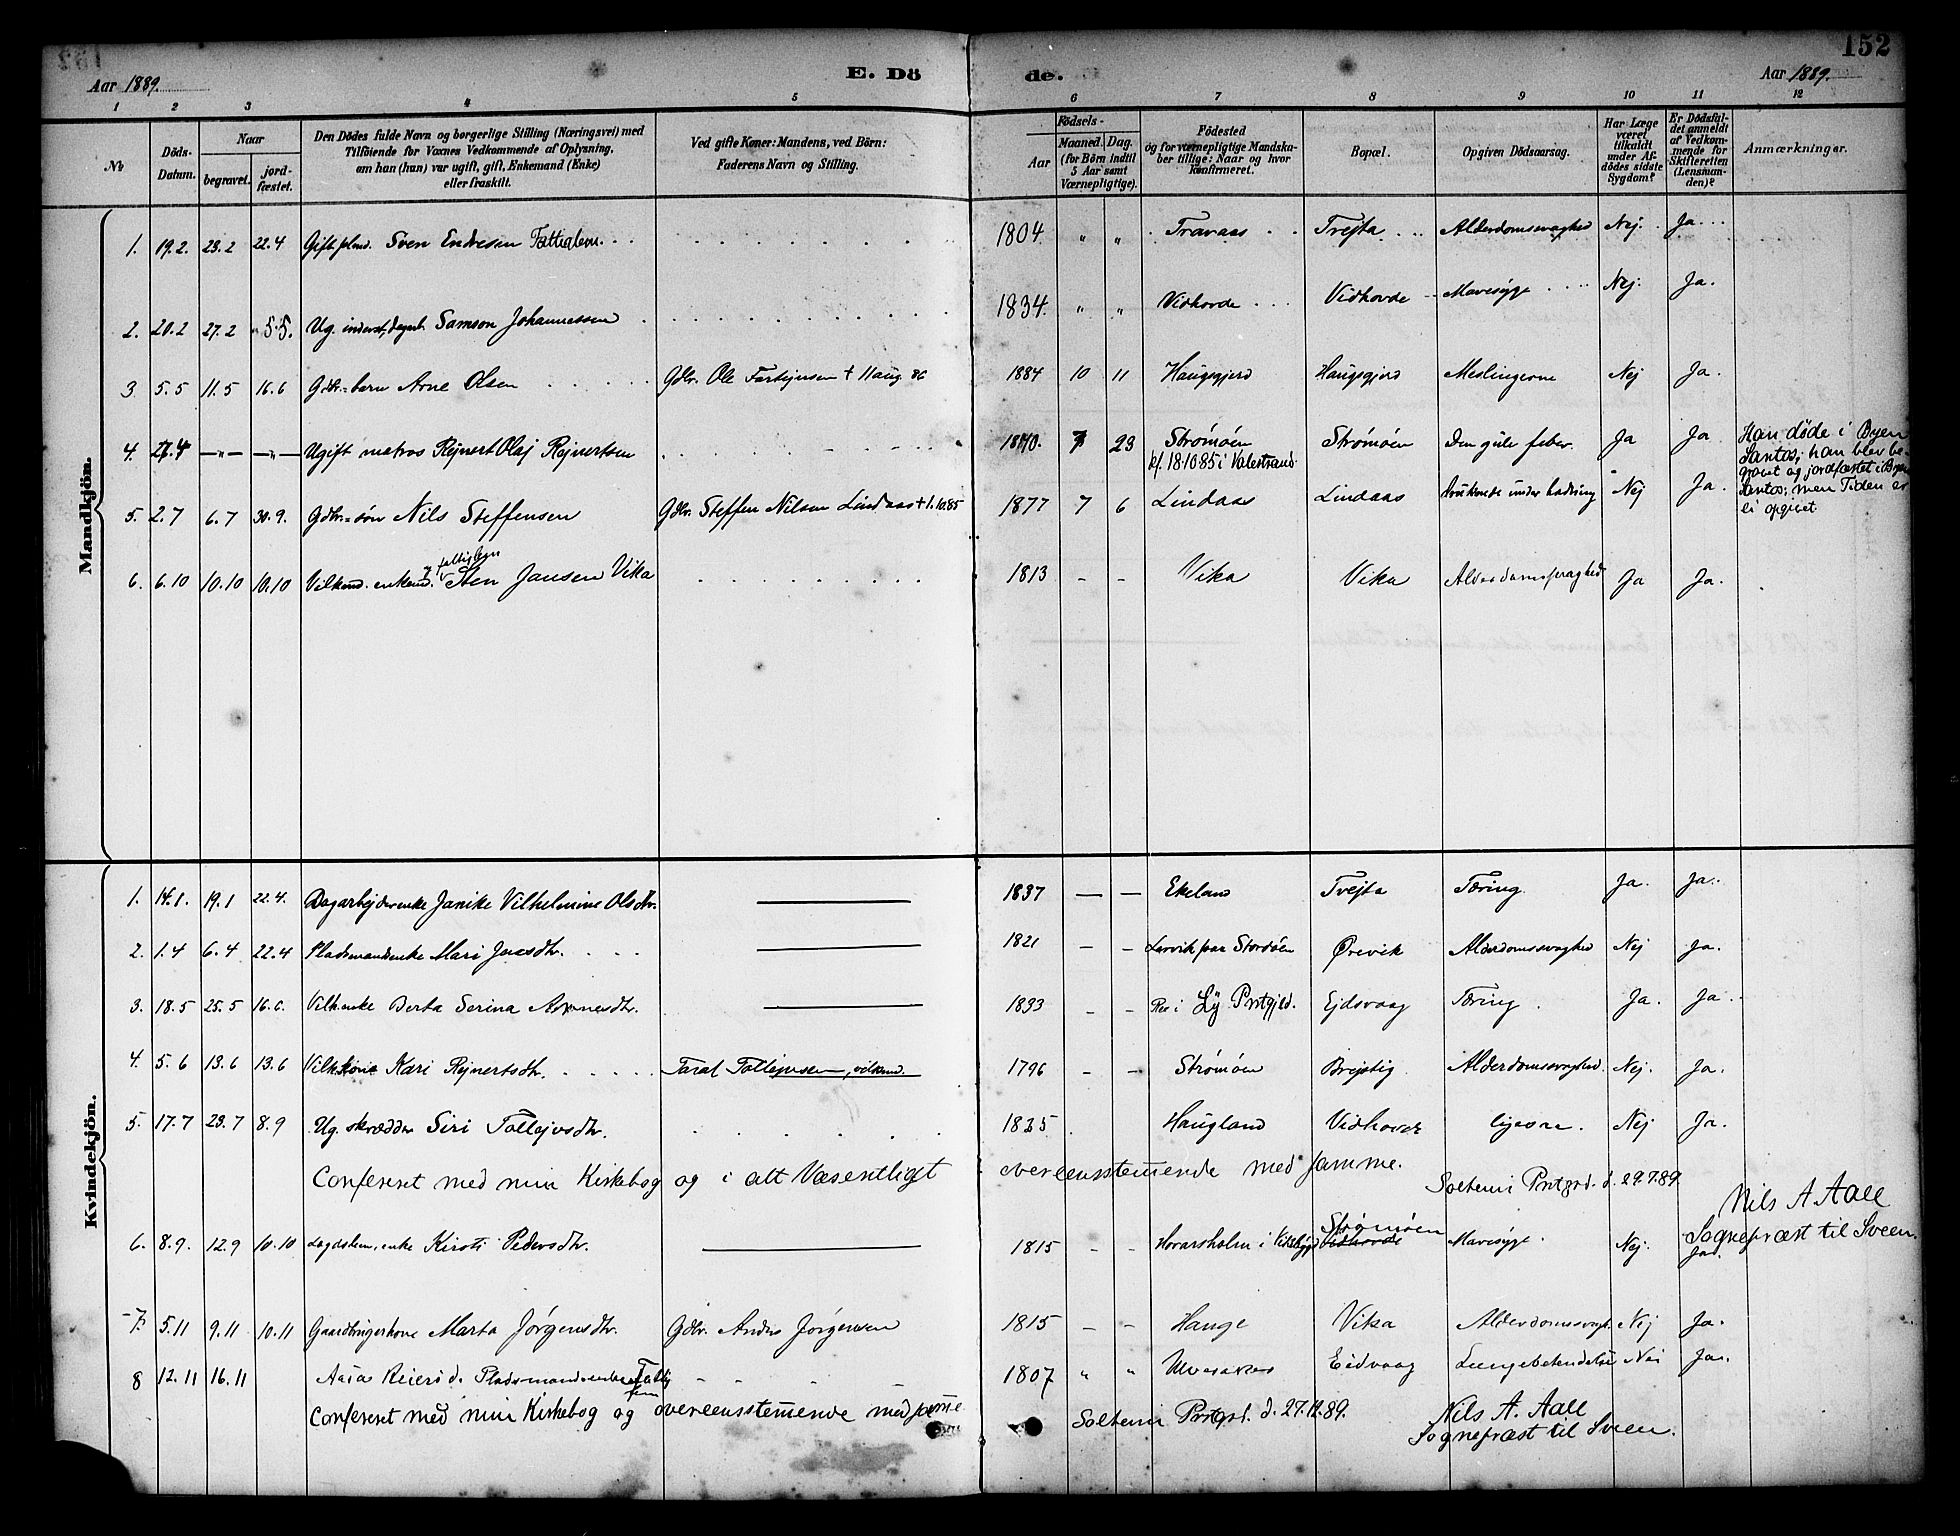 152
Aar 1889.
E. Dö
de.
Aar 1889.
1 2 3 4 5 6 7 8 9 10 11 12
Nr
Döds-Datum.
Naar
begravet.
jord-fæstet.
Den Dödes fulde Navn og borgerlige Stilling (Næringsvei) med
Tilföiende for Voxnes Vedkommende af Oplysning.
om han (hun) var ugift, gift, Enkemand (Enke)
eller fraskilt.
Ved gifte Koner: Mandens, ved Börn:
Faderens Navn og Stilling.
Födsels-
Aar
Maaned. Dag.
(for Börn indtil
5 Aar samt
Værnepligtige).
Födested
og for værnepligtige Mandska-
ber tillige: Naar og hvor
konfirmeret.
Bopæl.
Opgiven Dödsaarsag.
Har Læge
været
tilkaldt
under Af-
dödes sidste
Sygdom?
Er Dödsfal-
det anmeldt
af Vedkom-
mende for
Skifteretten
(Lensman-
den)?
Anmærkninger.
Mandkjön.
1. 19.2. 23.2 22.4 Sven Endresen 1804. " " Travaas Trejta Alderdomssvaghed Nej. Ja
2. 20.2 27.2 5.5. Ug. inderst, Samson Johannessen 1834. " " Vidhovde Vidhovde Mavesyge Nej. Ja.
3 5.5 11.5 16.6 Gdbr.=barn Arne Olsen Gdbr. Ole + 11 aug. 86 1884 10 11 Haugsgjerd Haugsgjerd Meslingerne Nej Ja.
4. 27.4 —"— —"— Ugift matros Rejnert Olaj Rejnertsen 1870. 7 23 Strømøen Strømøen Den gule feber. Ja Ja Han døde i Byen
kf. 18.10 85 i Valestrand. Santos; han blev be-
gravet og jordfæstet i Byen
Santos; men Tiden er
ei opgivet.
5. 2.7 6.7 30.9. Gdbr.=søn Nils Steffensen Gdbr. Steffen Nilsen Lindaas + 1.10.85 1877 7 6 Lindaas Lindaas Druknede under badning Nej Ja.
6. 6.10 10.10 10.10 Vilkmd. enkemd. Sten Jansen Vika 1813 - - Vika Vika Ja Ja.
Kvindekjön.
1. 14.1. 19.1 22.4. Dagarbejderenke Janike Vilhelmine Olsdtr. 1837 — — Ekeland Tvejta Tæring. Ja. Ja.
2. 1.4 6.4 22.4 Pladsmandsenke Mari 1821 - - Lervik paa Stordøen Ørevik Alderdomssvaghed Nej Ja.
3. 18.5 25.5 16.6. Vilk.enke Berta Serina 1833 - - Ejdsvaag Tæring. Ja. Ja.
4. 5.6 13.6 13.6 Vilk.kone Kari Rejnertsdtr. Tollejvsen, vilkmd. 1796 - - Strømøen Brejstig Alderdomssvaghed. Nej. Ja
5. 17.7 23.7 8.9 Ug. skrædder Siri Tollejvsdtr. 1835 Haugland Nej Ja.
Confereret med min Kirkebog og i alt Væsentligt overeensstemmende med samme.
Solheim Prstgrd. d. 29.7.89.
Nils A. Aall
Sognepræst til Sveen.
6. 8.9. 12.9 10.10 enke Kirsti Pedersdtr. 1815 - - Strømøen Vidhovde Mavesyge. Nej. Ja.
7. 5.11 9.11 10.11 Gaardbrugerkone Marta Jørgensdtr. Gdbr. Anders Jørgensen 1815 - - Hauge Vika Nej Ja.
8 12.11 16.11 Aasa Reiersd. 1807 " " Eidvaag Lungebetendelse Nei Ja.
Confereret med min Kirkebog og overeensstemmende med samme.
Solheim Prstgrd. d. 27.12.89.
Nils A. Aall
Sognepræst til Sveen.